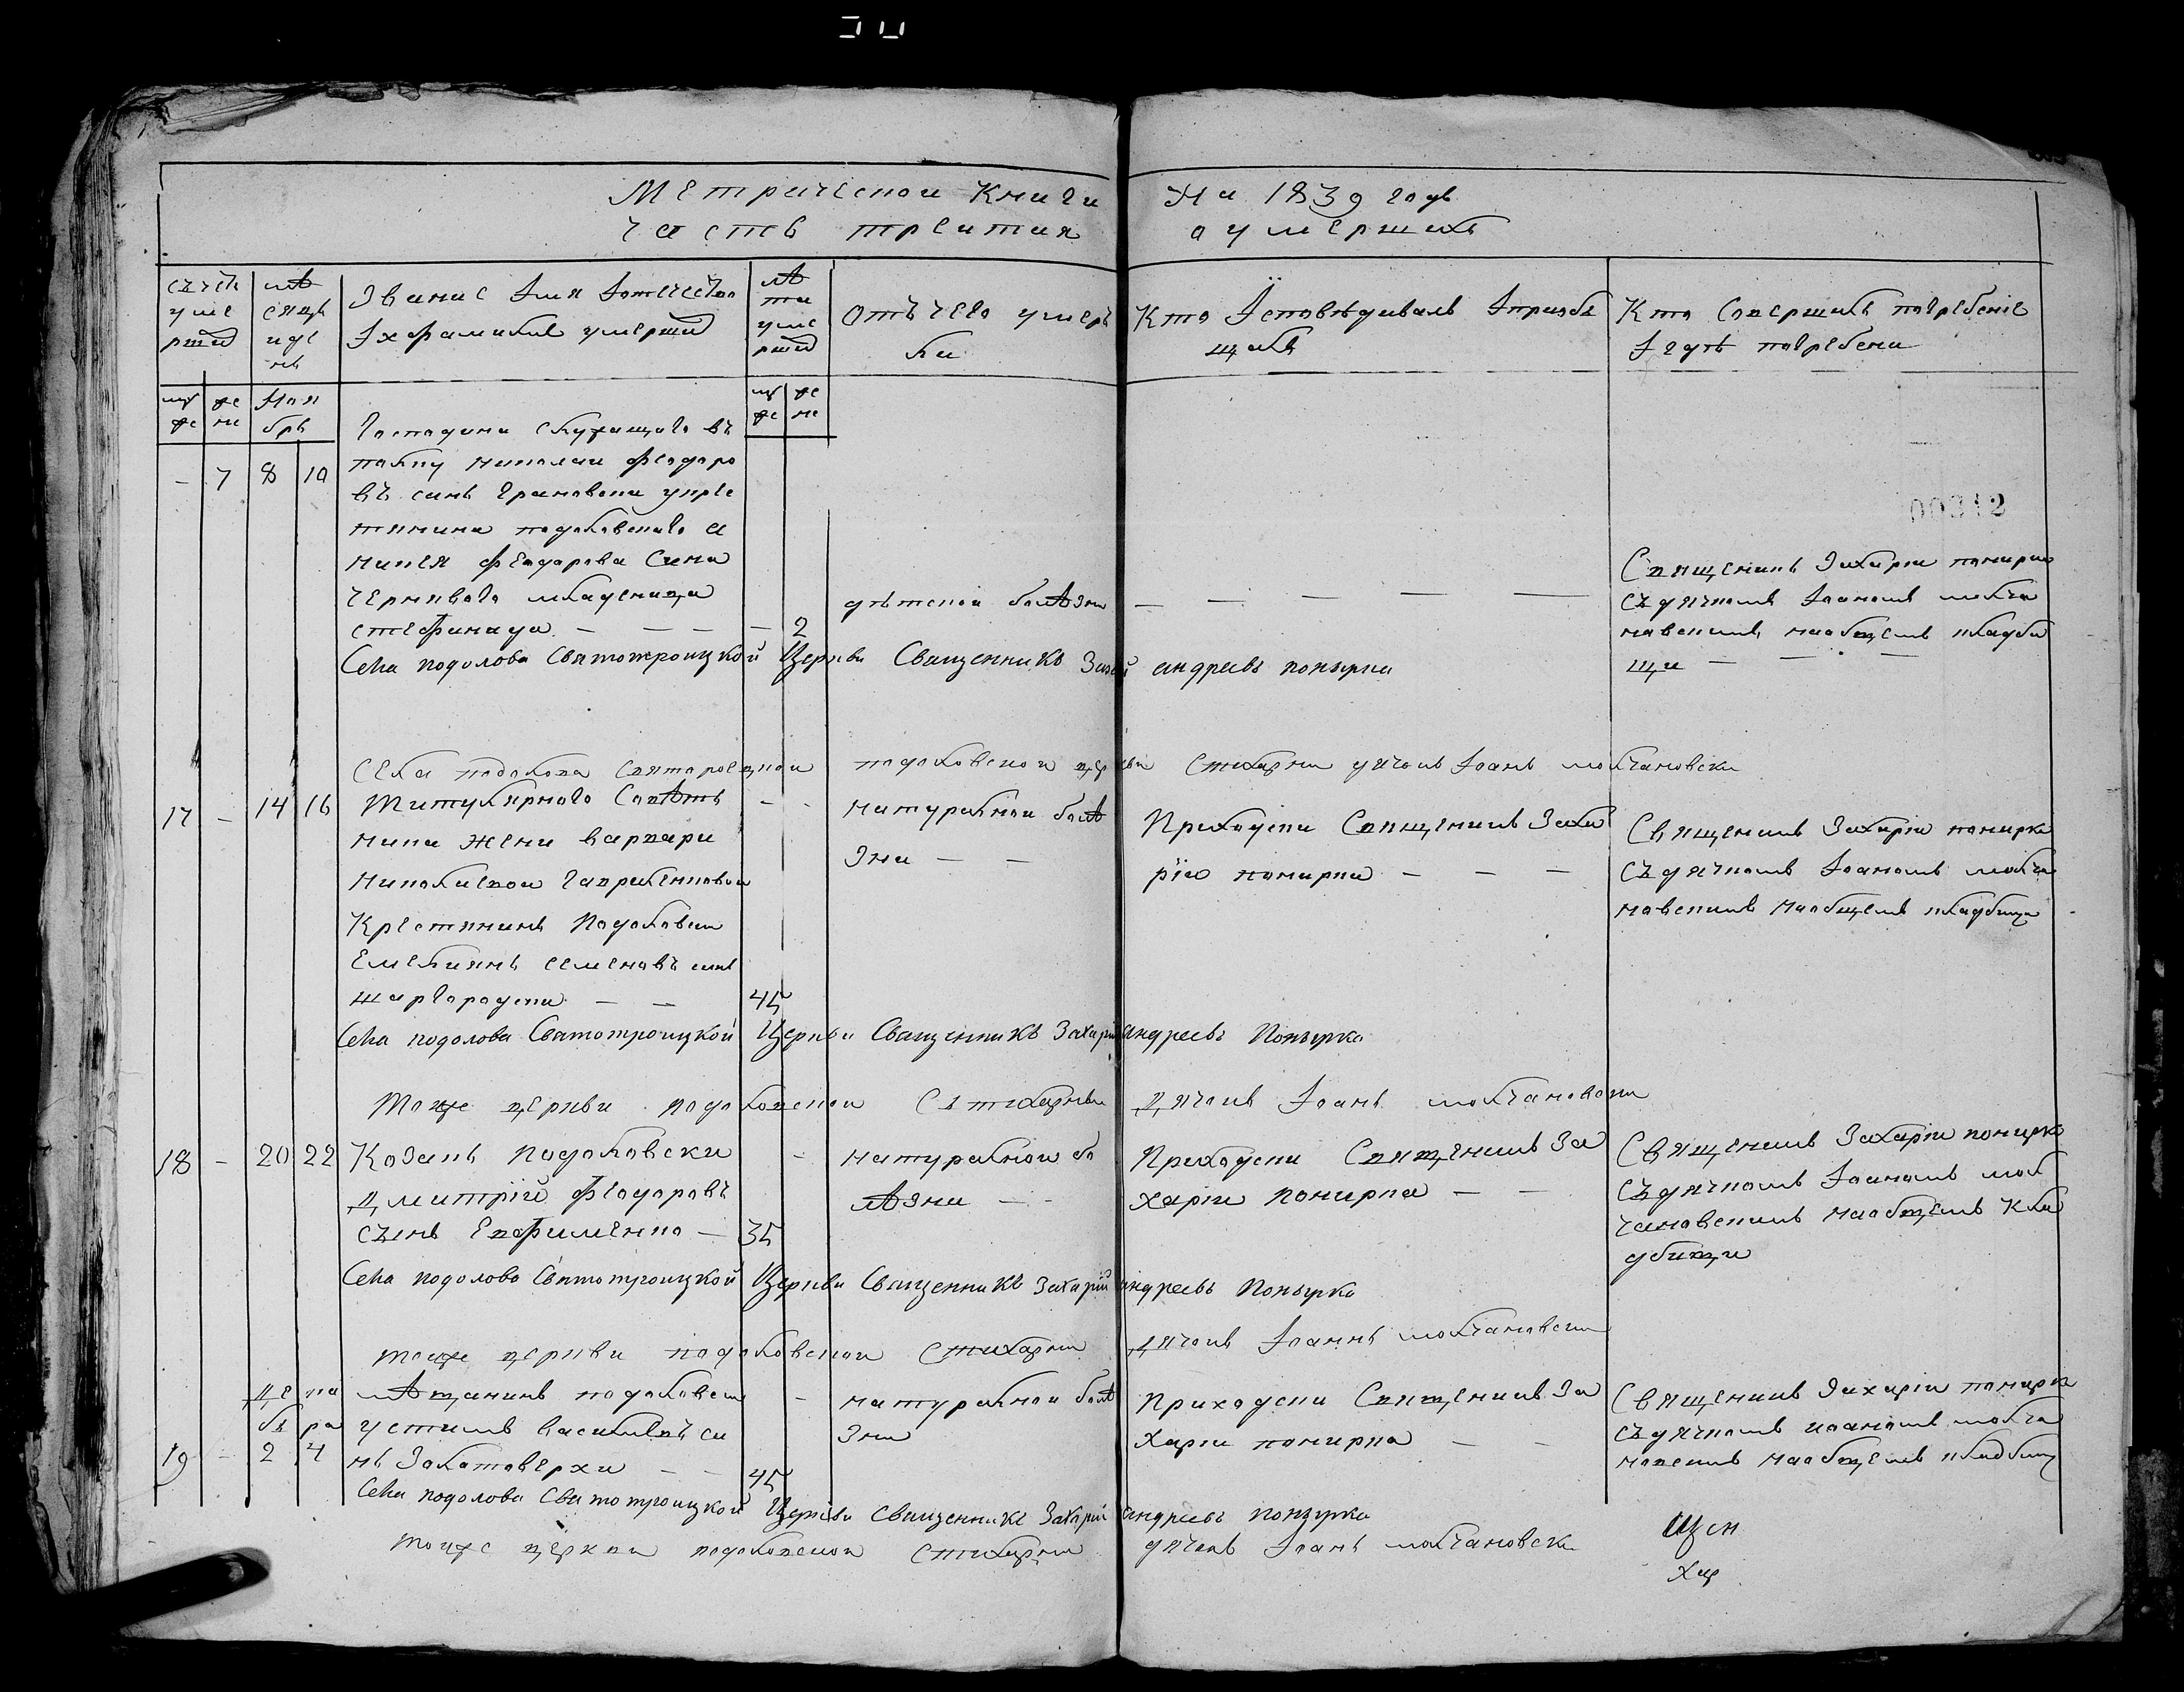 Метрической Книги На 1839 годъ
часть третия о умершихъ
счетъ умершихъ
мѣсяцъ и день
Званіе Імя Іотчество
Іхъ Фамилие умершихъ
лѣта умершихъ
Отъ чего умерли
Кто Їсповѣдивалъ Іприобщалъ
Кто Совершилъ погребеніе
Ігдѣ погребени
муже жене Ноябрь муже жене
Господина служащаго въ
полку Николаи Феодоро
въ синъ
- 7 8 10
тянина подоловскаго
Феодорова Сина
младеница
Стефанида — — — — 2
дѣтской болѣзни — — — — —
Священикъ Захарїи понирка
съ дячкомъ Іоаномъ молча
новскимъ наобщемъ кладби
щи — — —
00312
Села подолова Святотроицкой Церкви Священникъ Захарій андреевъ понырка
Села подолова подоловской церкви Стихарни дячокъ Іоанъ молчановски
17 - 14 16 Титулярного Совѣт
ника жени варвари
николаевои
Крестянинъ Подоловски
Емелиянъ Семеновъ синъ
шаргородски — — 45
натуралной болѣ
зни — —
Приходски Священикъ Заха
рїи понирка — — —
Священикъ Захарїи понирка
съ дячкомъ Іоаномъ молча
новскимъ наобщемъ кладбищи
Села подолова Святотроицкой Церкви Священникъ Захарій андреевъ Понырка
Тоиже церкви подоловской Стихарни Дячокъ Іоанъ молчановски
18 - 20 22 Козакъ Подоловски
Дмитрїй Феодоровъ
сынъ Евфименко — 35
натуралной бо
лѣзни — -
Приходски Священикъ За
харїи Понирка — —
Священикъ Захарїи понирка
съ дячкомъ Іоаномъ мол
чановскимъ наобщемъ Кла
дбищи
Села подолова Святотроицкой Церкви Священникъ Захарій андреевъ Понырка
тоиже церкви подоловской Стихарни Дячокъ Іоаннъ молчановски
Декабря
19 - 2 4
мѣщанинъ подоловски
устимъ василиевъ си
нъ Золотоверхи — — 45
натуралной болѣ
зни
приходски Священикъ За
харїи понирка — —
Священикъ Захарїи понирка
съ дячкомъ иоаномъ молча
новскимъ наобщемъ кладбищ
Села подолова Святотроицкой Церкви Священникъ Захарій андреевъ понырка
тоиже церкви подоловской Стихарни дячокъ Іоанъ молчановски